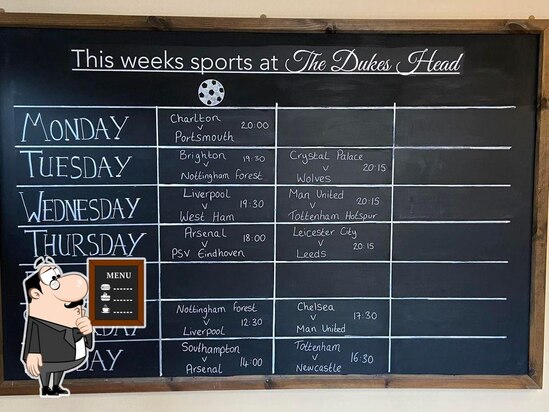 This weeks sports at The Dukes Head
MONDAY
Charlton
v 20:00
Portsmouth
TUESDAY
Brighton
v 19:30
Nottingham Forest
Crystal Palace
v 20:15
Wolves
WEDNESDAY
Liverpool
v 19:30
West Ham
Man United
v 20:15
Tottenham Hotspur
THURSDAY
Arsenal
v 18:00
PSV Eindhoven
Leicester City
v 20:15
Leeds
MENU
Nottingham Forest
v 12:30
Liverpool
Chelsea
v 17:30
Man United
DAY
Southampton
v 14:00
Arsenal
Tottenham
v 16:30
Newcastle